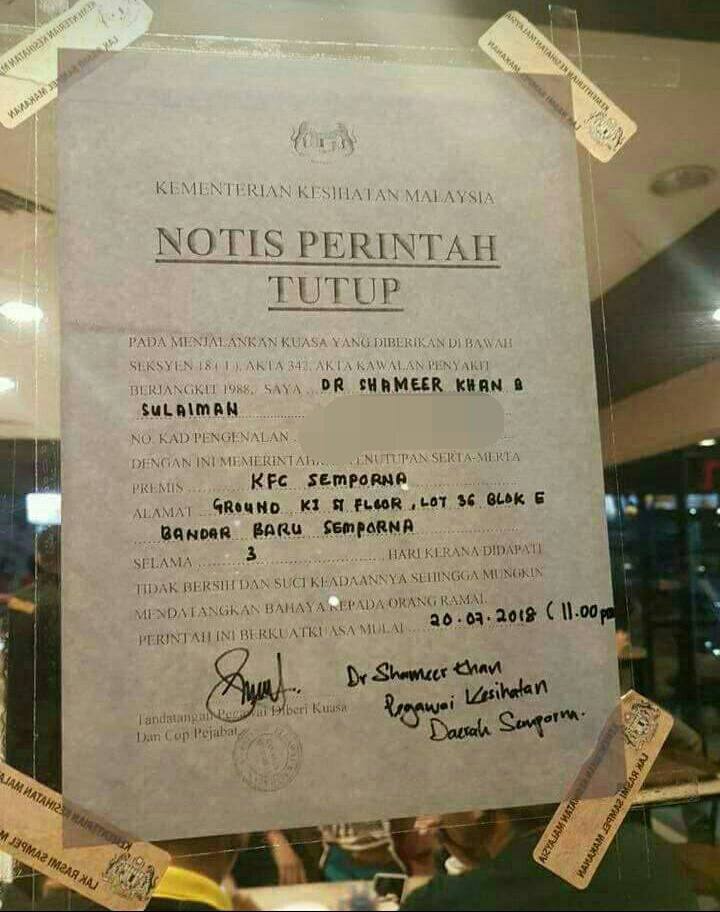 KEMENTERIAN KESIHATAN MALAYSIA
NOTIS PERINTAH
TUTUP
PADA MENJALANKAN KUASA YANG DIBERIKAN DI BAWAH
SEKSYEN 18 ( 1 ), AKTA 342, AKTA KAWALAN PENYAKIT
BERJANGKIT 1988, SAYA DR SHAMEER KHAN B
SULAIMAN
NO. KAD PENGENALAN
DENGAN INI MEMERINTAH PENUTUPAN SERTA-MERTA
PREMIS KFC SEMPORNA
ALAMAT GROUND FLOOR, LOT 36 BLOK E
BANDAR BARU SEMPORNA
SELAMA 3 HARI KERANA DIDAPATI
TIDAK BERSIH DAN SUCI KEADAANNYA SEHINGGA MUNGKIN
MENDATANGKAN BAHAYA KEPADA ORANG RAMAI.
PERINTAH INI BERKUATKUASA MULAI 20.07.2018 ( 11.00 pm
Dr Shameer Khan
Pegawai Kesihatan
Daerah Semporna.
Tandatangan Pegawai Diberi Kuasa
Dan Cop Pejabat
KEMENTERIAN KESIHATAN MALAYSIA
LAK RASMI SAMPEL MAKANAN